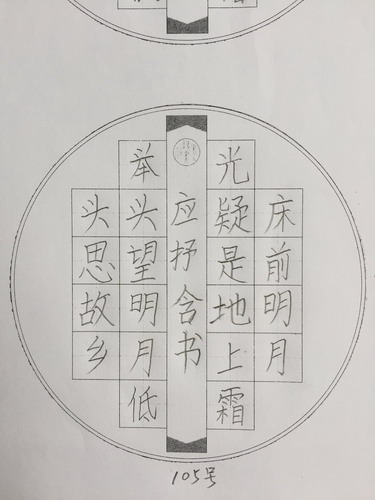 床前明月
光疑是地上霜
应抒含书
举头望明月低
头思故乡
105号